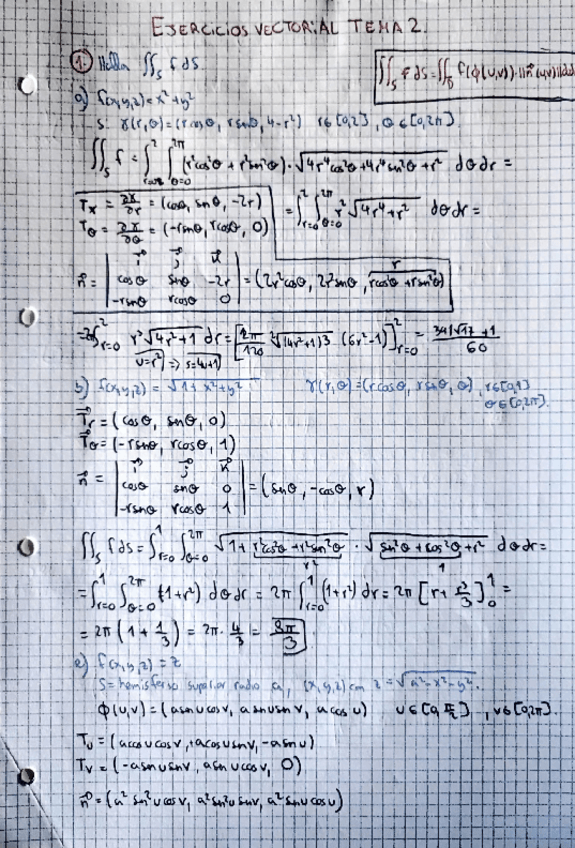 EJERCICIOS VECTORIAL TEMA 2.
① Halla ∬_S f dS
∬_S f dS = ∬_D f(φ(u,v))·||n⃗(u,v)||
a) f(x,y,z) = x²+y²
S: γ(r,θ) = (r cosθ, r senθ, 4-r²) r∈[0,2], θ∈[0,2π]
∬_S f = ∫_{r=0}^{2} ∫_{θ=0}^{2π} (r²cos²θ + r²sen²θ)·√(4r⁴cos²θ+4r⁴sen²θ+r²) dθdr =
= ∫_{r=0}^{2} ∫_{θ=0}^{2π} r² √(4r⁴+r²) dθdr =
T_x = ∂x/∂r = (cosθ, senθ, -2r)
T_θ = ∂x/∂θ = (-rsenθ, rcosθ, 0)
n⃗ = | i⃗ j⃗ k⃗ |
| cosθ senθ -2r | = (2r²cosθ, 2r²senθ, rcos²θ+rsen²θ)
r
| -rsenθ rcosθ 0 |
∫_{r=0}^{2} r³√(4r²+1) dr = [2π/120 √(4r²+1)³ (6r²-1)]_{r=0}^{2} = 391√17+1 / 60
b) f(x,y,z) = √(1+x²+y²) γ(r,θ) = (rcosθ, rsenθ, θ), r∈[0,1]
θ∈[0,2π].
T⃗_r = (cosθ, senθ, 0)
T⃗_θ = (-rsenθ, rcosθ, 1)
n⃗ = | i⃗ j⃗ k⃗ |
| cosθ senθ 0 | = (senθ, -cosθ, r)
| -rsenθ rcosθ 1 |
∬_S f dS = ∫_{r=0}^{1} ∫_{θ=0}^{2π} √(1+r²cos²θ+r²sen²θ) · √(sen²θ+cos²θ+r²) dθdr =
r² 1
= ∫_{r=0}^{1} ∫_{θ=0}^{2π} (1+r²) dθdr = 2π ∫_{r=0}^{1} (1+r²) dr = 2π [r + r³/3]_0^1 =
= 2π (1 + 1/3) = 2π · 4/3 = 8π/3
e) f(x,y,z) = z
S = hemisferio superior radio a, (x,y,z) con z = √(a²-x²-y²).
φ(u,v) = (asenucosv, asenusenv, acosu) u∈[0,π/2], v∈[0,2π].
T_u = (acosucosv, +acosusenv, -asenu)
T_v = (-asenusenv, asenucosv, 0)
n⃗ = (a²sen²ucosv, a²sen²usenv, a²senucosu)